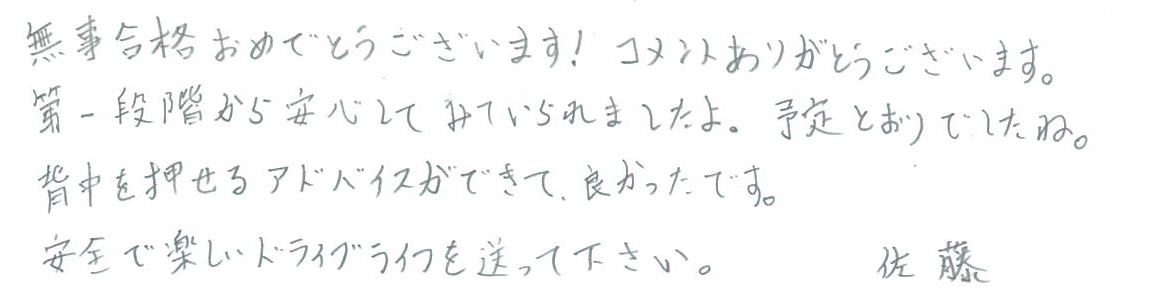 無事合格おめでとうございます! コメントありがとうございます。
第一段階から安心してみていられましたよ。予定とおりでしたね。
背中を押せるアドバイスができて、良かったです。
安全で楽しいドライブライフを送って下さい。 佐藤